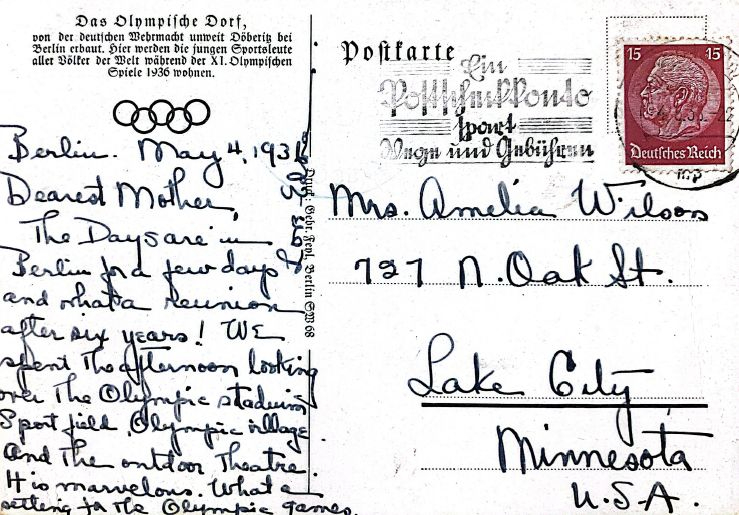 Das Olympische Dorf,
von der deutschen Wehrmacht unweit Döberitz bei
Berlin erbaut. Hier werden die jungen Sportsleute
aller Völker der Welt während der XI. Olympischen
Spiele 1936 wohnen.
Berlin. May 4, 1936
Dearest Mother,
The Days are in
Berlin for a few days
and what a reunion
after six years! WE
spent The afternoon looking
over The Olympic stadium
Sport field, Olympic village
and The outdoor Theatre.
It is marvelous. What a
setting for the Olympic games.
Druck: Gebr. Feyl, Berlin SW 68
Postkarte
Ein
Postscheckkonto
spart
Wege und Gebühren
15 15
Deutsches Reich
Mrs. Amelia Wilson
727 N. Oak St.
Lake City
Minnesota
U.S.A.